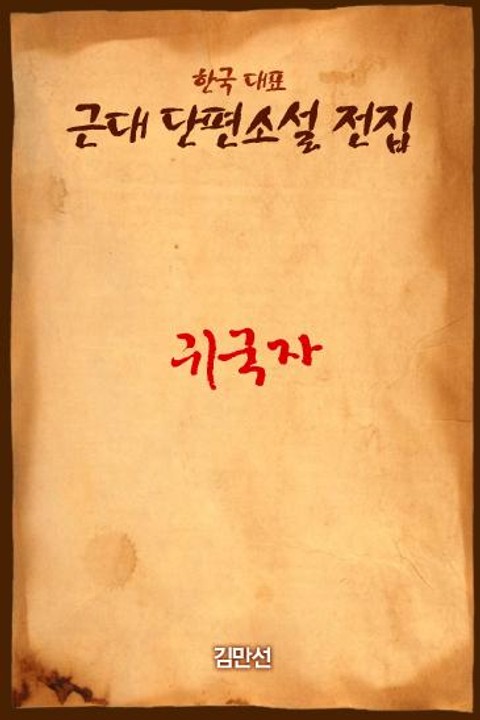 한국 대표
근대 단편소설 전집
귀국자
김만선